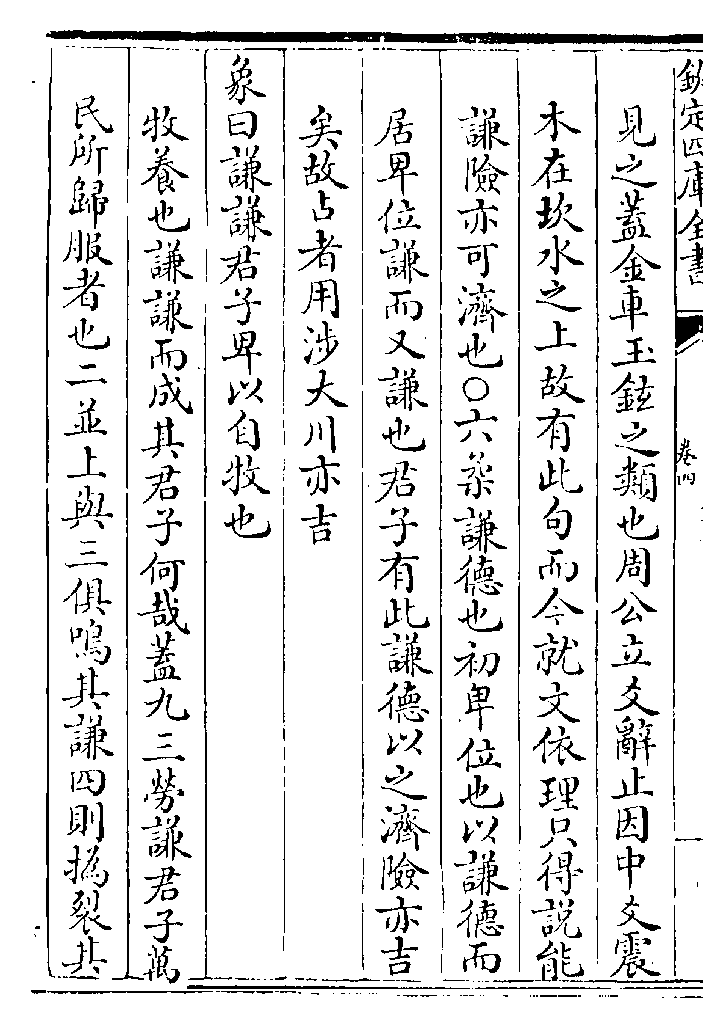 欽定四庫全書
卷四
見之蓋金車玉鉉之類也周公立爻辭止因中爻震
木在坎水之上故有此句而今就文依理只得説能
謙險亦可濟也○六柔謙德也初卑位也以謙德而
居卑位謙而又謙也君子有此謙德以之濟險亦吉
矣故占者用涉大川亦吉
象曰謙謙君子卑以自牧也
牧養也謙謙而成其君子何哉蓋九三勞謙君子萬
民所歸服者也二並上與三俱鳴其謙四則撝裂其